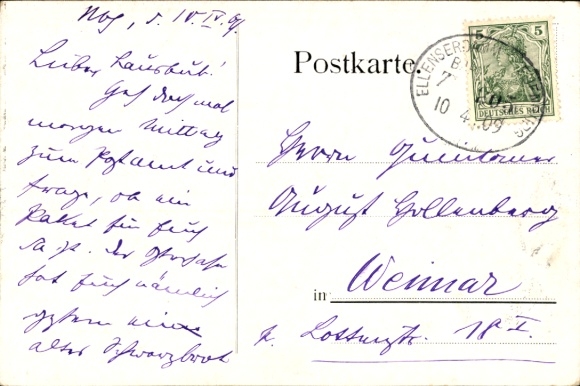 d. 10. IV. 09.
Lieber Lausbub!
Geh doch mal
morgen Mittag
zum Postamt und
frage, ob ein
Paket für Euch
da ist. Der Osterhase
hat Euch nämlich
gestern ein
altes Schwarzbrot
Postkarte.
5 5
DEUTSCHES REICH
10 4.09
Herrn
August Hollenberg
in Weimar
Lottenstr. 18 I.